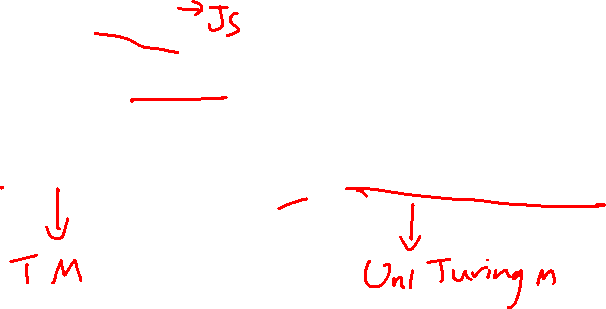 →JS
TM
Uni Turing m